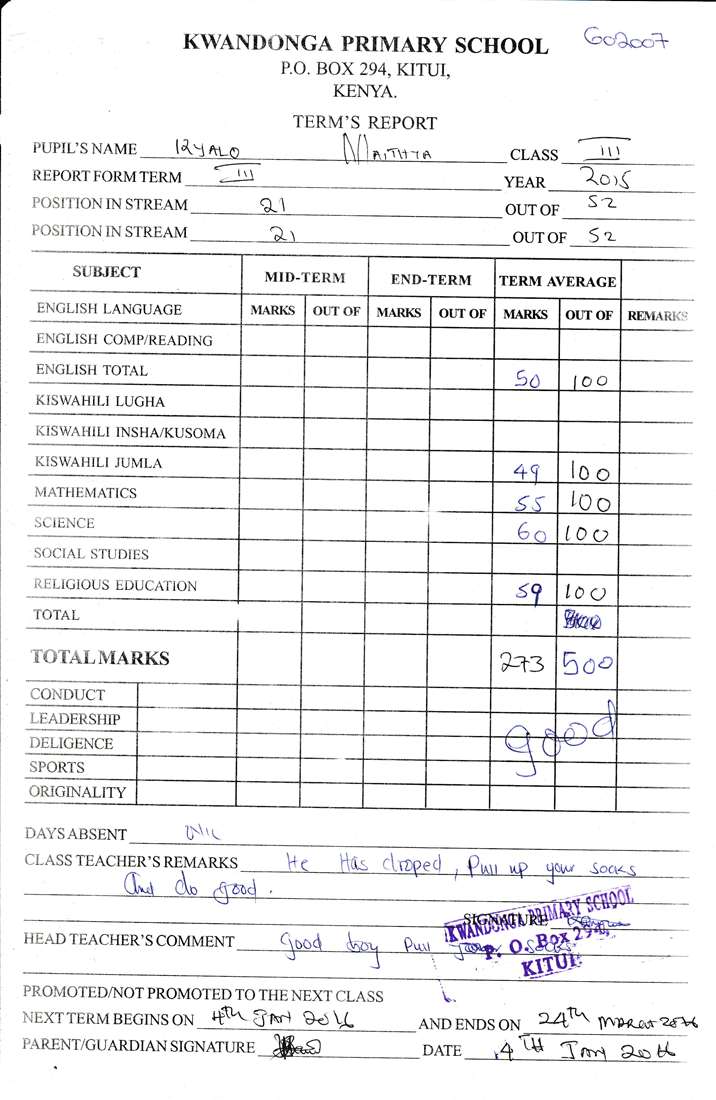 KWANDONGA PRIMARY SCHOOL G02007
P.O. BOX 294, KITUI,
KENYA.
TERM'S REPORT
PUPIL'S NAME IZYALO MAITHYA CLASS III
REPORT FORM TERM III YEAR 2015
POSITION IN STREAM 21 OUT OF 52
POSITION IN STREAM 21 OUT OF 52
SUBJECT MID-TERM END-TERM TERM AVERAGE
ENGLISH LANGUAGE MARKS OUT OF MARKS OUT OF MARKS OUT OF REMARKS
ENGLISH COMP/READING
ENGLISH TOTAL 50 100
KISWAHILI LUGHA
KISWAHILI INSHA/KUSOMA
KISWAHILI JUMLA 49 100
MATHEMATICS 55 100
SCIENCE 60 100
SOCIAL STUDIES
RELIGIOUS EDUCATION 59 100
TOTAL
TOTAL MARKS 273 500
CONDUCT
LEADERSHIP
DELIGENCE good
SPORTS
ORIGINALITY
DAYS ABSENT NIL
CLASS TEACHER'S REMARKS He Has droped, Pull up your socks
And do good.
SIGNATURE
KWANDONGA PRIMARY SCHOOL
P. O. Box 294,
KITUI
HEAD TEACHER'S COMMENT Good boy Pull your socks
PROMOTED/NOT PROMOTED TO THE NEXT CLASS
NEXT TERM BEGINS ON 4th JAN 2016 AND ENDS ON 24TH MARCH 2016
PARENT/GUARDIAN SIGNATURE DATE 4TH JAN 2016